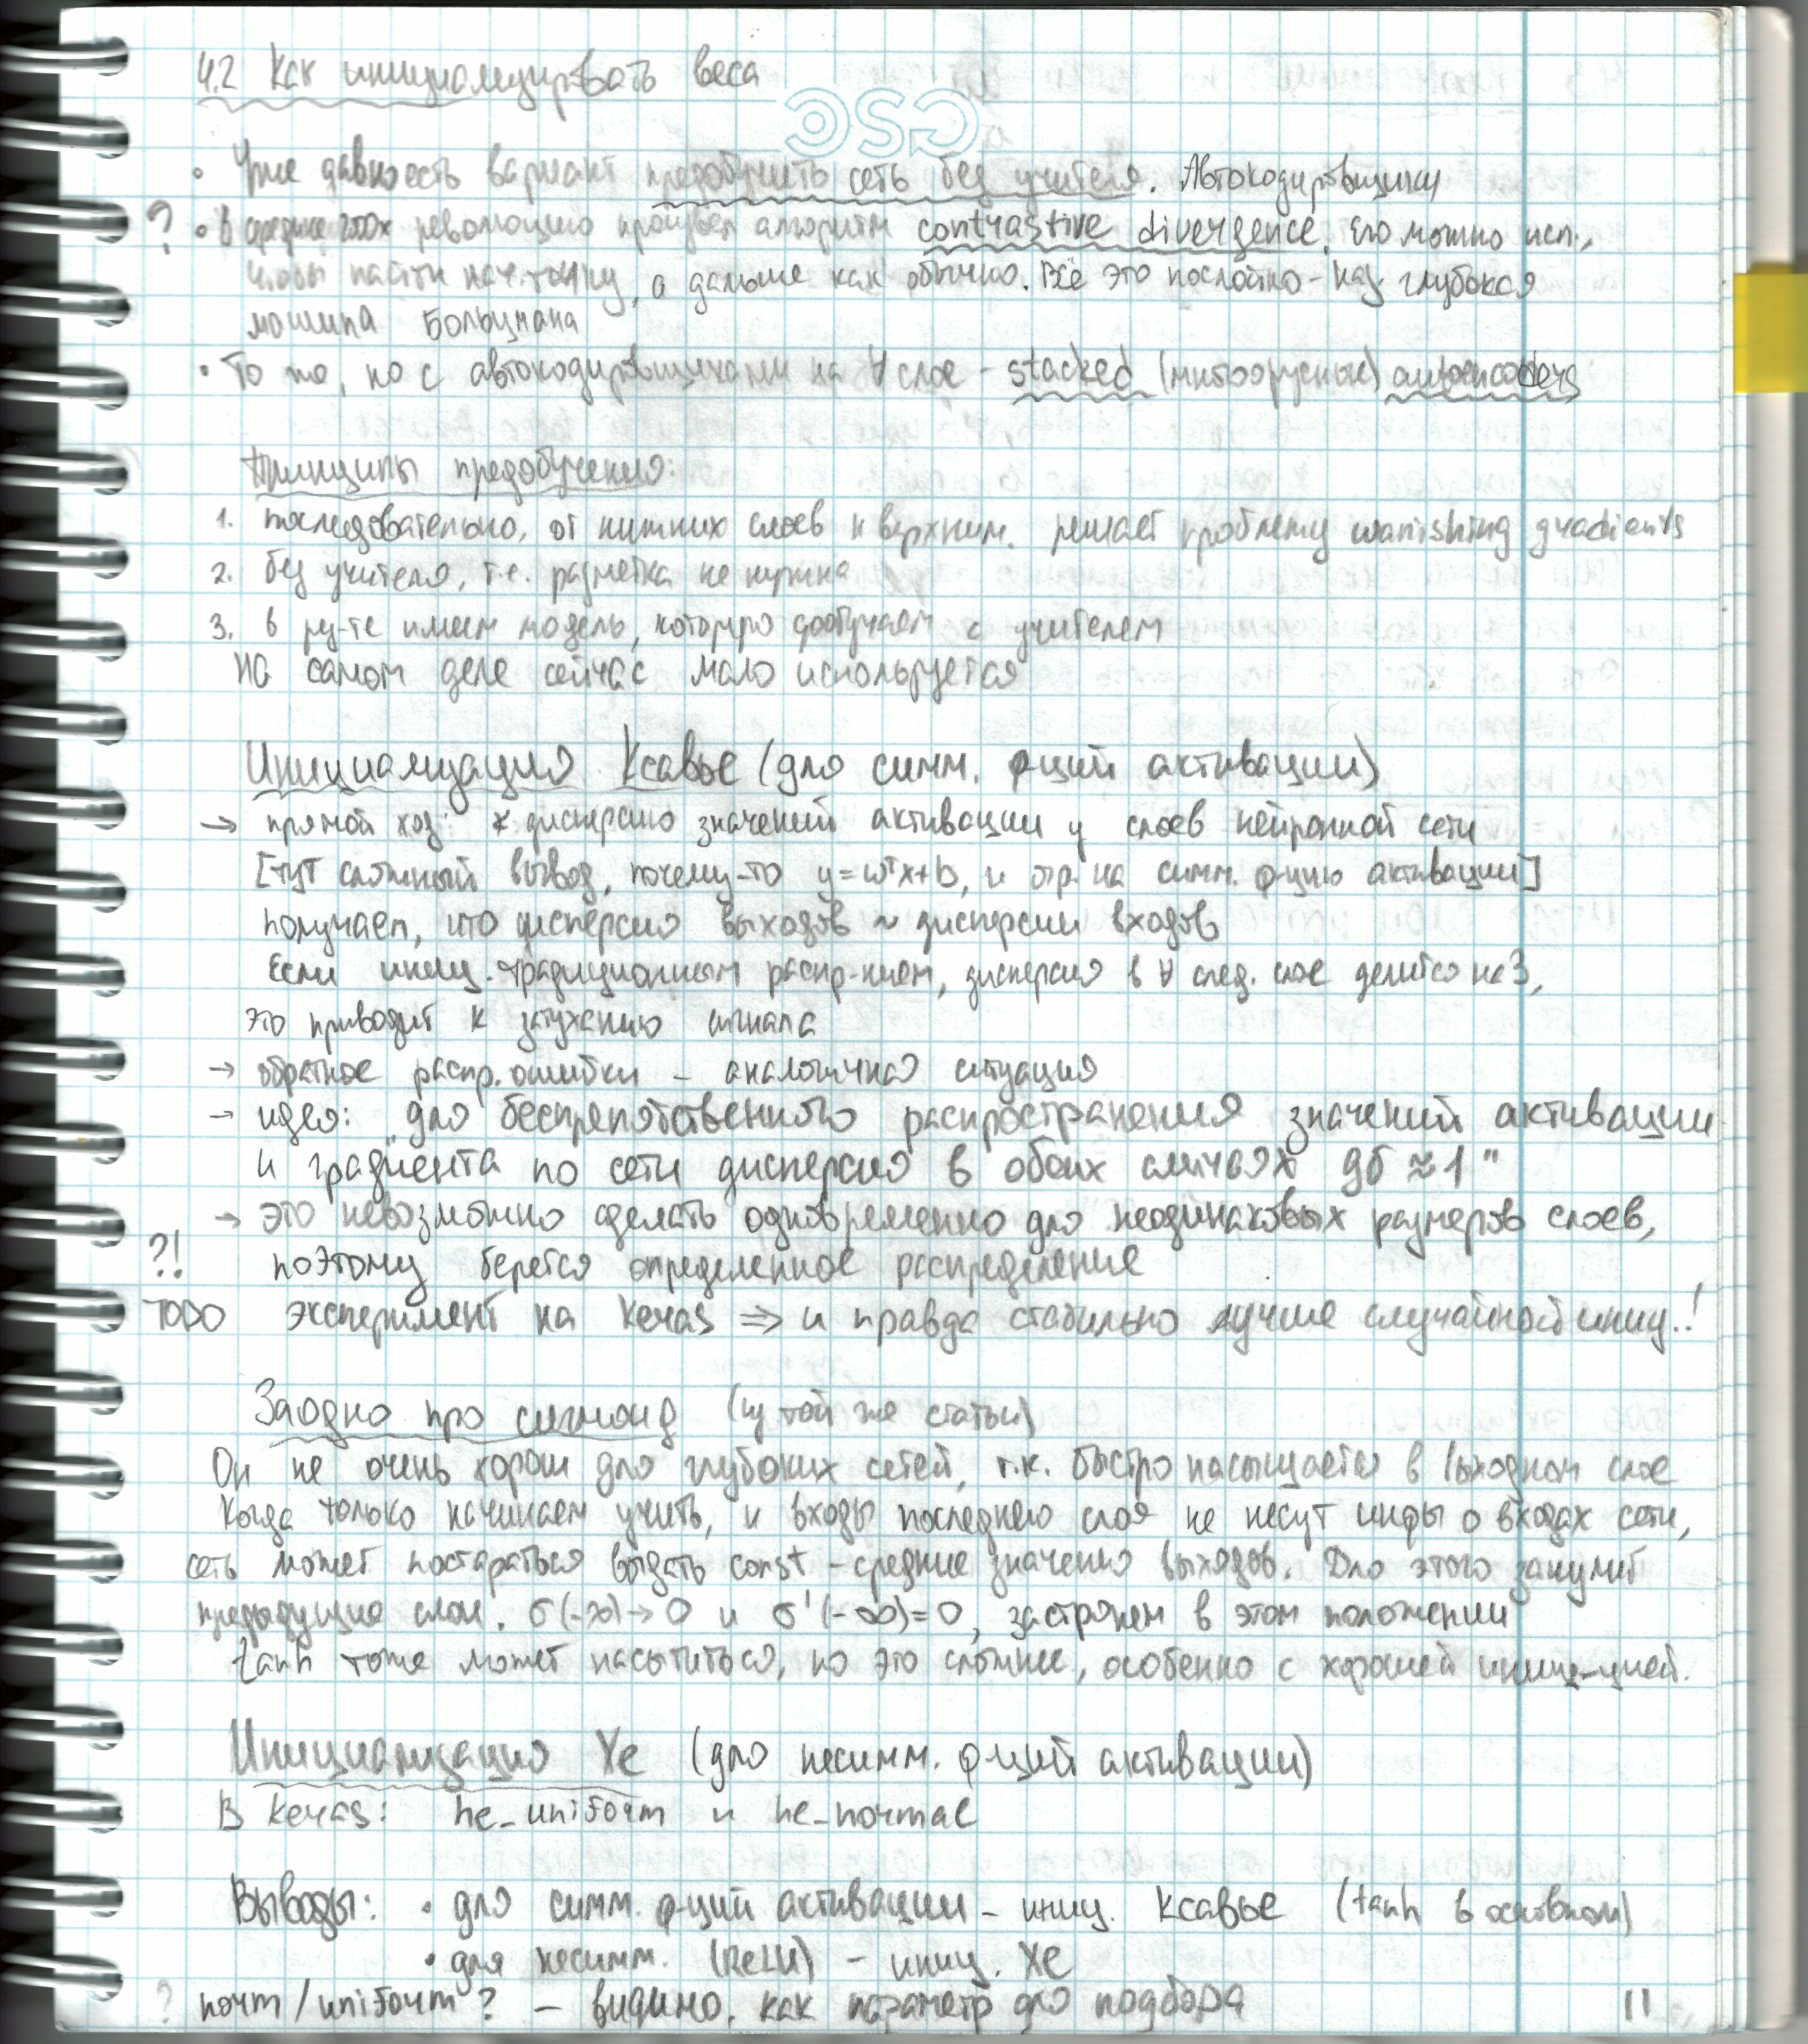 4.2 Как инициализировать веса
csc
• Уже давно есть вариант предобучить сеть без учителя. Автокодировщики
? • В середине 2000х революцию произвел алгоритм contrastive divergence. Его можно исп.,
чтобы найти нач. точку, а дальше как обычно. Всё это послойно - наз. глубокая
машина Больцмана
• То же, но с автокодировщиками на ∀ слое - stacked (многоярусные) autoencoders
Принципы предобучения:
1. последовательно, от нижних слоев к верхним. решает проблему wanishing gradients
2. без учителя, т.е. разметка не нужна
3. в рез-те имеем модель, которую дообучаем с учителем
На самом деле сейчас мало используется
Инициализация Ксавье (для симм. ф-ций активации)
→ прямой ход: дисперсию значений активации у слоев нейронной сети
[тут сложный вывод, почему-то y=wᵀx+b, и огр. на симм. ф-цию активации]
получаем, что дисперсия выходов ~ дисперсии входов
Если иниц. традиционным распр-нием, дисперсия в ∀ след. слое делится на 3,
это приводит к затуханию сигнала
→ обратное распр. ошибки - аналогичная ситуация
→ идея: "для беспрепятственного распространения значений активации
и градиента по сети дисперсия в обоих случаях дб ≈ 1"
→ это невозможно сделать одновременно для неодинаковых размеров слоев,
?! поэтому берется определенное распределение
TODO эксперимент на Keras ⇒ и правда стабильно лучше случайной иниц.!
Заодно про сигмоид (из той же статьи)
Он не очень хорош для глубоких сетей, т.к. быстро насыщается в выходном слое
Когда только начинаем учить, и входы последнего слоя не несут инфы о входах сети,
сеть может постараться выдать const - средние значения выходов. Для этого занулит
предыдущие слои. σ(-∞)→0 и σ'(-∞)=0, застрянем в этом положении
tanh тоже может насытиться, но это сложнее, особенно с хорошей иници-цией.
Инициализация Хе (для несимм. ф-ций активации)
В Keras: he_uniform и he_normal
Выводы: • для симм. ф-ций активации - иниц. Ксавье (tanh в основном)
• для несимм. (ReLU) - иниц. Хе
? norm/uniform? - видимо, как параметр для подбора
11